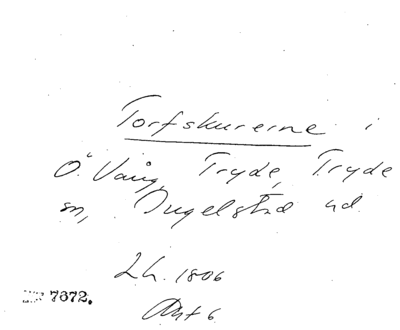 Torfskurerne i
Ö. Vång, Tryde, Tryde
sn, Ingelstad hd
Lh. 1806
Akt 6
7672.